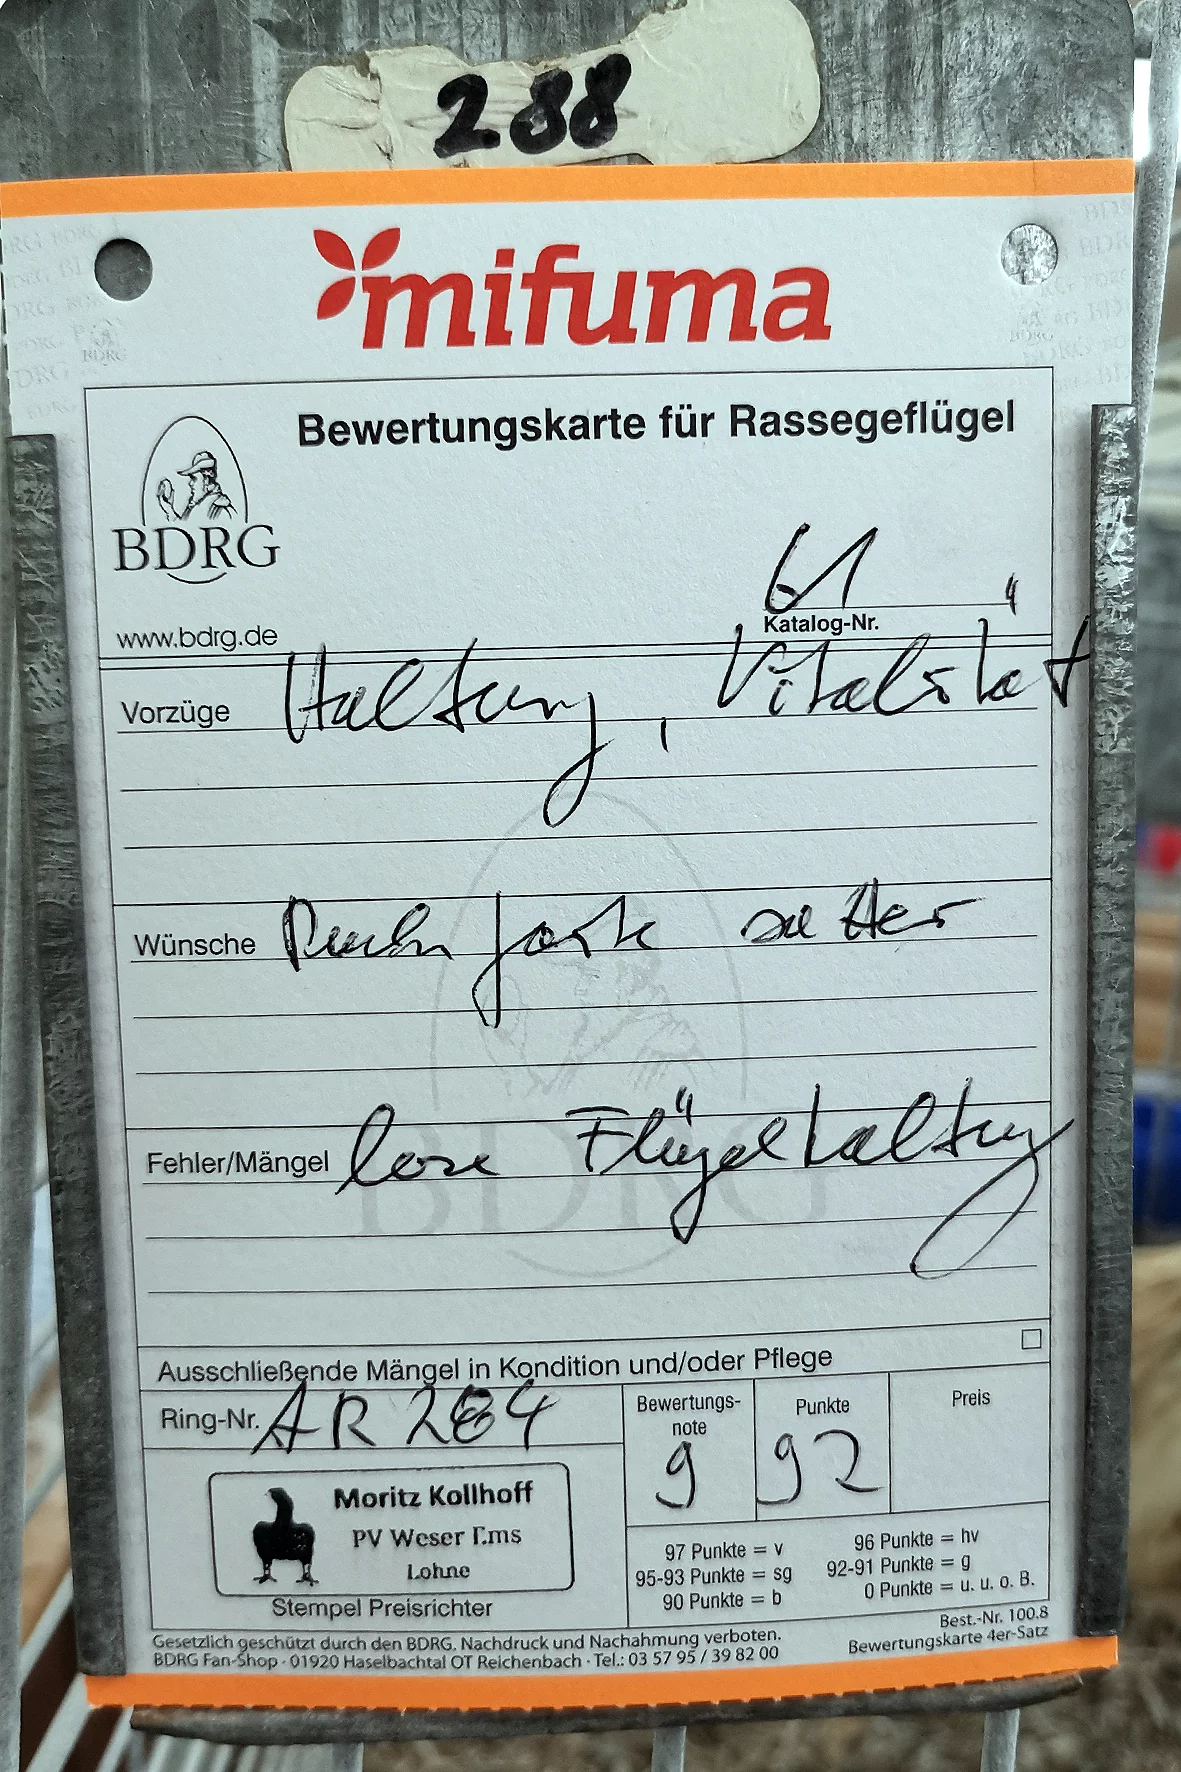 288
mifuma
Bewertungskarte für Rassegeflügel
BDRG
www.bdrg.de
61
Katalog-Nr.
Vorzüge Haltung, Vitalität
Wünsche satter
Fehler/Mängel lose Flügelhaltung
Ausschließende Mängel in Kondition und/oder Pflege
Ring-Nr. AR
Bewertungs-
note
9
Punkte
92
Preis
Moritz Kollhoff
PV Weser Ems
Lohne
Stempel Preisrichter
97 Punkte = v
96 Punkte = hv
95-93 Punkte = sg
92-91 Punkte = g
90 Punkte = b
0 Punkte = u. u. o. B.
Gesetzlich geschützt durch den BDRG. Nachdruck und Nachahmung verboten.
BDRG Fan-Shop · 01920 Haselbachtal OT Reichenbach · Tel.: 03 57 95 / 39 82 00
Best.-Nr. 100.8
Bewertungskarte 4er-Satz